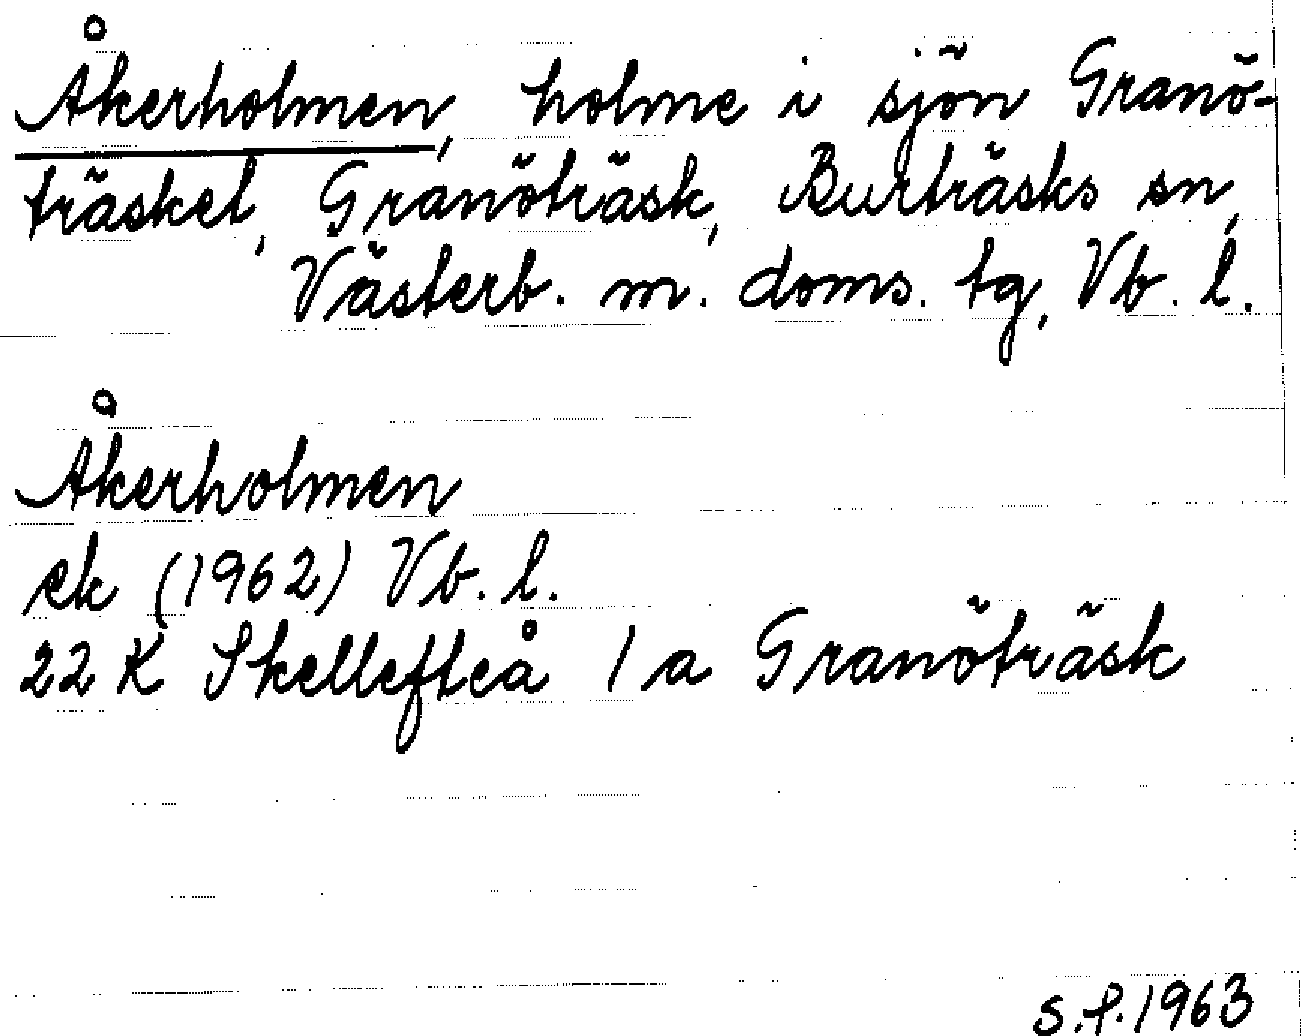 Åkerholmen, holme i sjön Granö-
träsket, Granöträsk, Burträsks sn,
Västerb. m. doms. tg, Vb. l.
Åkerholmen
ek (1962) Vb. l.
22 K Skellefteå 1 a Granöträsk
S.f. 1963